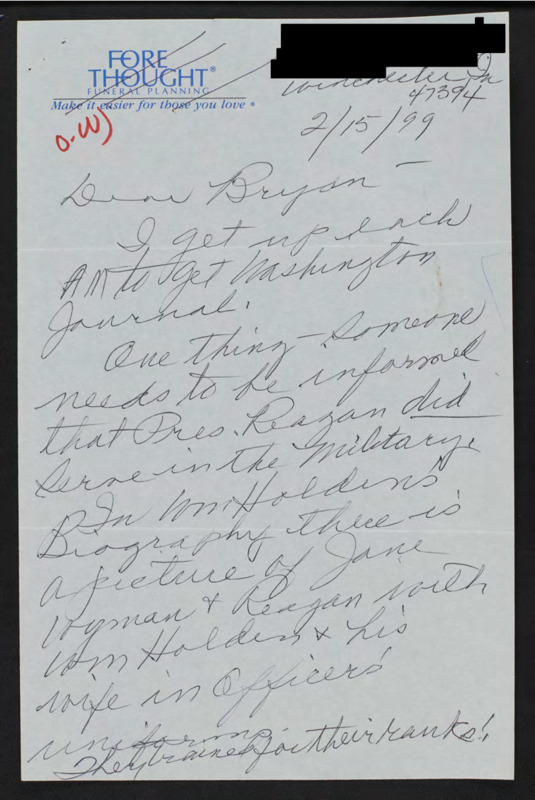 FORE
THOUGHT®
FUNERAL PLANNING
Make it easier for those you love ®
Winchester In
47394
2/15/99
Dear Bryan —
I get up each
AM to get Washington
Journal.
One thing - Someone
needs to be informed
that Pres. Reagan did
serve in the Military.
In Wm Holdens'
Biography there is
a picture of Jane
Wyman & Reagan with
Wm Holden & his
wife in Officers'
uniforms.
They trained for their ranks!